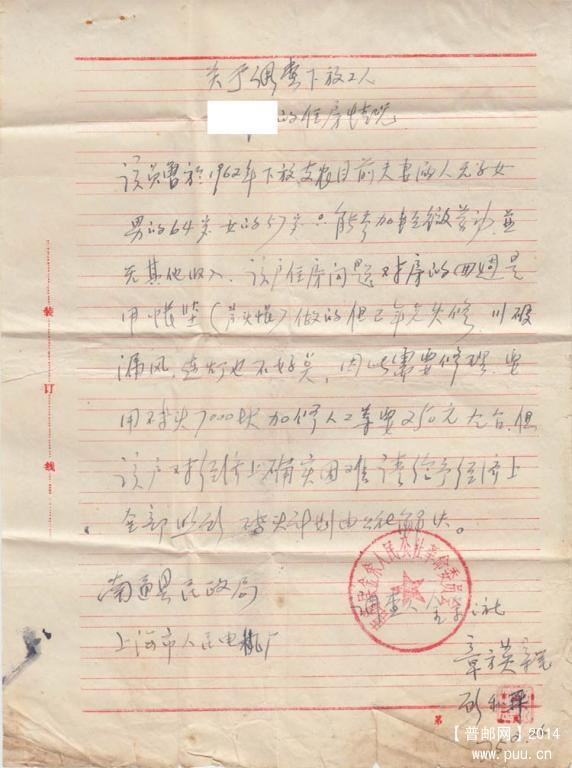 关于调查下放工人
的住房情况
该员曾於1962年下放支农目前夫妻两人无子女
男的64岁女的57岁只能参加轻微劳动,并
无其他收入,该户住房问题对房的四週是
用 (芦头 )做的但已年久失修,
漏风, 也不好 ,因此需要修理,要
用砖头7000块加修人工等要250元左右,但
该户对经济上确实困难请给予经济上
全部照顾,砖头计划由公社解决。
南通县民政局
上海市人民电机厂
人民公社革命委员会
调查人
装
订
线
第
【普邮网】2014
www.puu.cn